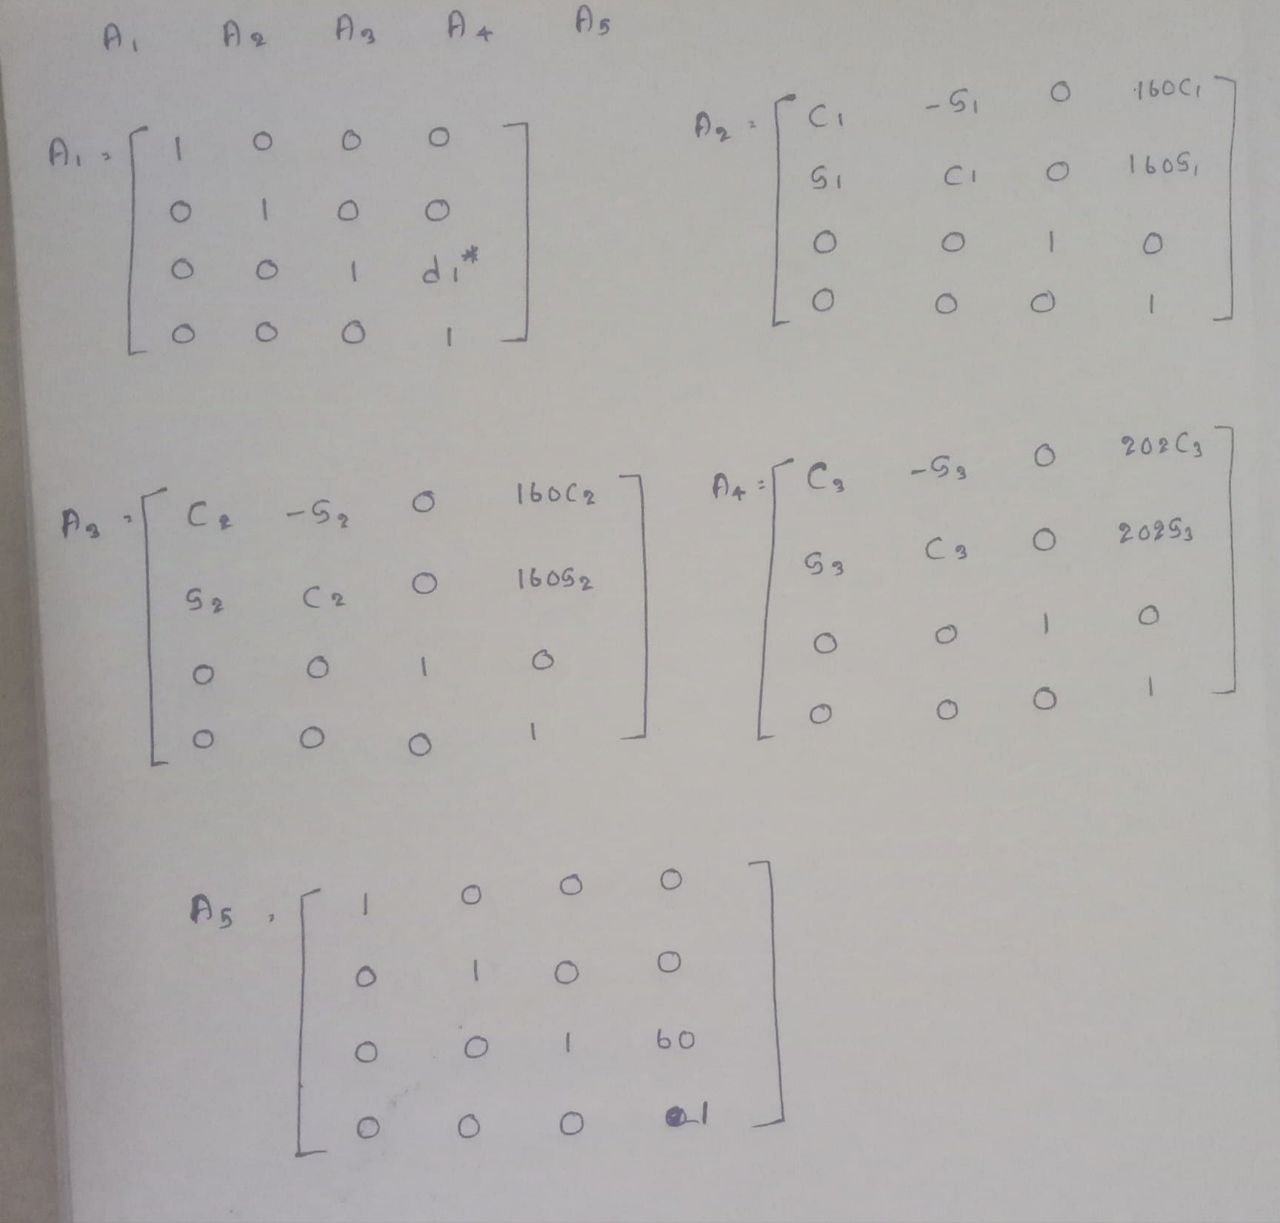 A₁ A₂ A₃ A₄ A₅
A₁ = [ 1 0 0 0
0 1 0 0
0 0 1 d₁*
0 0 0 1 ]
A₂ = [ C₁ -S₁ 0 160C₁
S₁ C₁ 0 160S₁
0 0 1 0
0 0 0 1 ]
A₃ = [ C₂ -S₂ 0 160C₂
S₂ C₂ 0 160S₂
0 0 1 0
0 0 0 1 ]
A₄ = [ C₃ -S₃ 0 202C₃
S₃ C₃ 0 202S₃
0 0 1 0
0 0 0 1 ]
A₅ = [ 1 0 0 0
0 1 0 0
0 0 1 60
0 0 0 1 ]